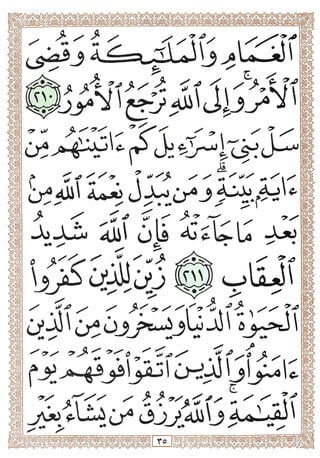 ٱلْغَمَامِ وَٱلْمَلَـٰٓئِكَةُ وَقُضِىَ
ٱلْأَمْرُ ۚ وَإِلَى ٱللَّهِ تُرْجَعُ ٱلْأُمُورُ ٢١٠
سَلْ بَنِىٓ إِسْرَٰٓءِيلَ كَمْ ءَاتَيْنَـٰهُم مِّنْ
ءَايَةٍۭ بَيِّنَةٍ ۗ وَمَن يُبَدِّلْ نِعْمَةَ ٱللَّهِ مِنۢ
بَعْدِ مَا جَآءَتْهُ فَإِنَّ ٱللَّهَ شَدِيدُ
ٱلْعِقَابِ ٢١١ زُيِّنَ لِلَّذِينَ كَفَرُوا۟
ٱلْحَيَوٰةُ ٱلدُّنْيَا وَيَسْخَرُونَ مِنَ ٱلَّذِينَ
ءَامَنُوا۟ ۘ وَٱلَّذِينَ ٱتَّقَوْا۟ فَوْقَهُمْ يَوْمَ
ٱلْقِيَـٰمَةِ ۗ وَٱللَّهُ يَرْزُقُ مَن يَشَآءُ بِغَيْرِ
٣٥